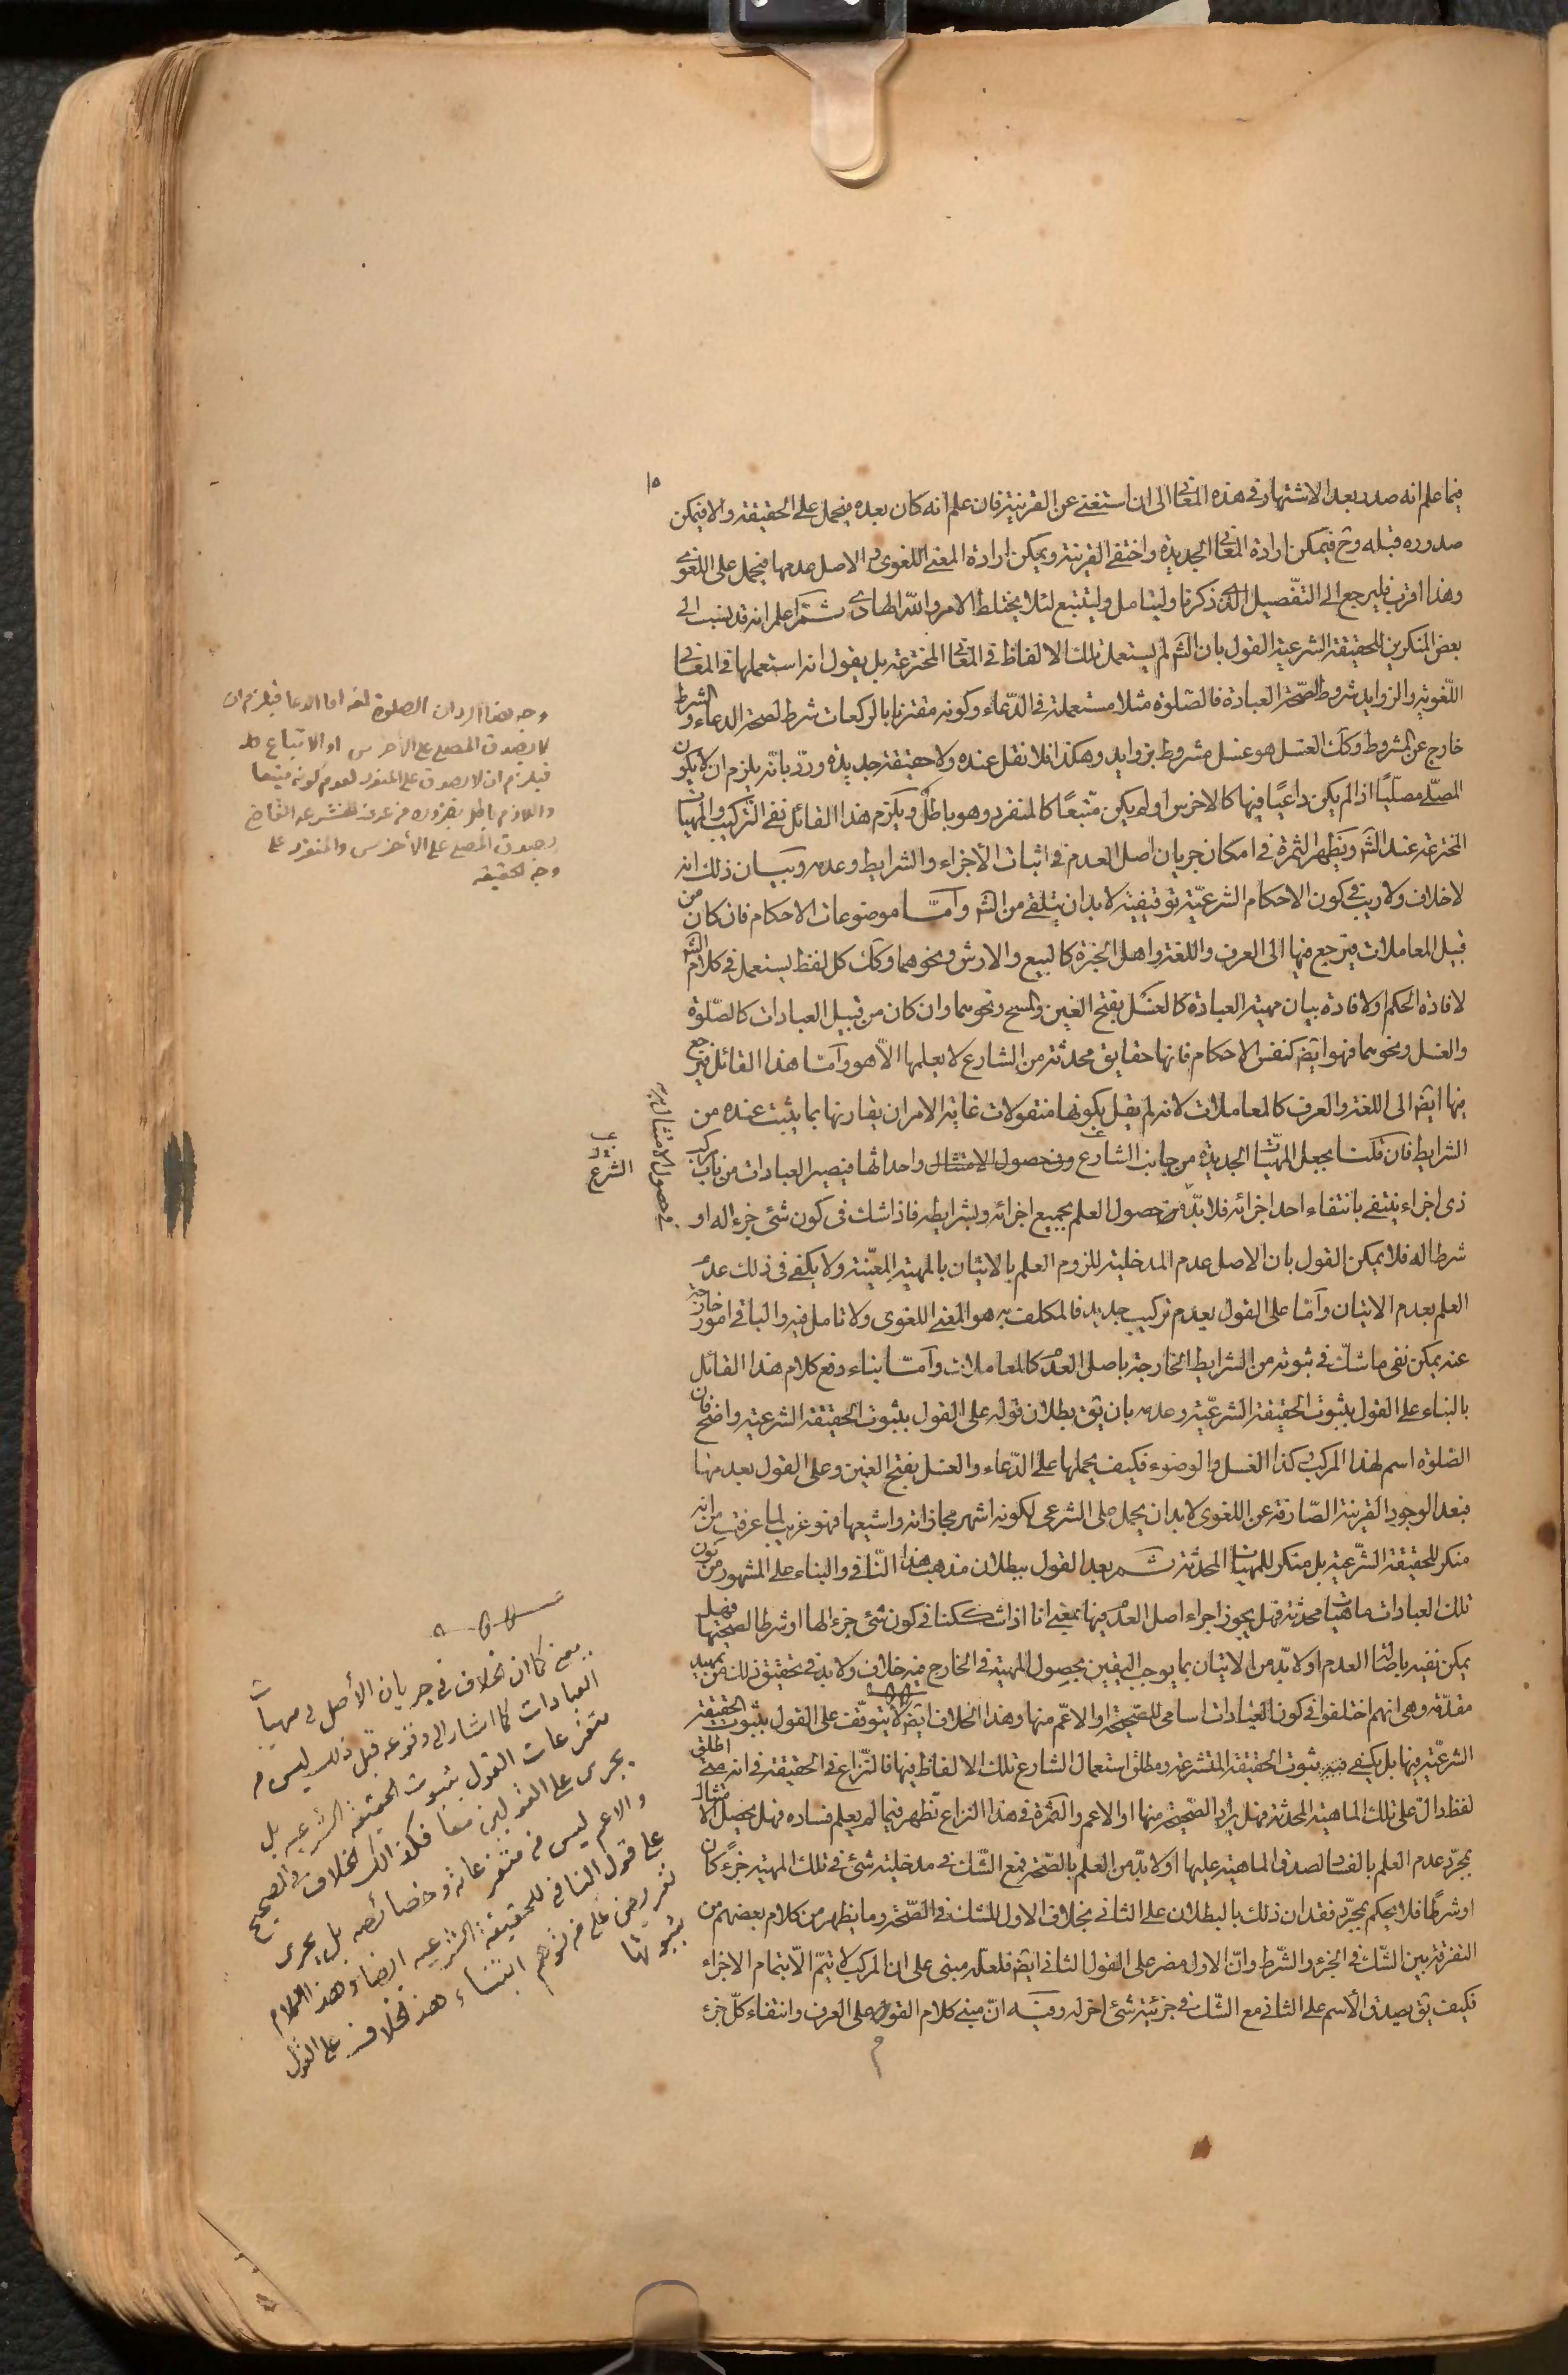 ١٥
فيما علم انه صدر بعد الاشتهار في هذه المعاني الى ان استغنى عن القرينة فان علم انه كان بعده فيحمل على الحقيقة والا فيمكن
صدوره قبله وح فيمكن ارادة المعاني الجديدة واختفى القرينة ويمكن ارادة المعنى اللغوي والاصل عدمها فيحمل على اللغوي
وهذا اقرب فليرجع الى التفصيل الذي ذكرنا وليتامل وليتتبع لئلا يختلط الامر والله الهادي ثم اعلم انه قد ينسب الى
بعض المنكرين للحقيقة الشرعية القول بان الش لم يستعمل تلك الالفاظ في المعاني المخترعة بل يقول انه استعملها في المعاني
اللغوية والزوايد شروط لصحة العبادة فالصلوة مثلا مستعملة في الدعاء وكونه مقترنا بالركعات شرط لصحة الدعاء والشرط
خارج عن المشروط وكك الغسل هو غسل مشروط بزوايد وهكذا فلا نقل عنده ولا حقيقة جديدة ورد بانه يلزم ان لا يكون
المصلي مصليا اذا لم يكن داعيا فيها كالاخرس اولم يكن متبعا كالمنفرد وهو باطل ويلزم هذا القائل نفي التركيب والمهيات
المخترعة عند الش ويظهر الثمرة في امكان جريان اصل العدم في اثبات الاجزاء والشرايط وعدمه وبيان ذلك انه
لا خلاف ولا ريب في كون الاحكام الشرعية توقيفية لا بد ان يتلقى من الش واما موضوعات الاحكام فان كان من
قبيل المعاملات فيرجع فيها الى العرف واللغة واهل الخبرة كالبيع والارش ونحوهما وكك كل لفظ يستعمل في كلام الش
لافادة الحكم ولافادة بيان مهية العبادة كالغسل بفتح الغين والمسح ونحوهما وان كان من قبيل العبادات كالصلوة
والغسل ونحوهما فهو ايضا كنفس الاحكام فانها حقايق محدثة من الشارع لا يعلمها الا هو واما هذا القائل فيرجع
فيها ايضا الى اللغة والعرف كالمعاملات لانه لم يقل بكونها منقولات غاية الامر ان يقارنها بما يثبت عنده من
الشرايط فان قلنا بجعل المهيات الجديدة من جانب الشارع وفي حصول الامتثال واحداثها فيصير العبادات من باب مركب
ذي اجزاء ينتفي بانتفاء احد اجزائه فلا بد من حصول العلم بجميع اجزائه وشرايطه فاذا شك في كون شئ جزء له او
شرطا له فلا يمكن القول بان الاصل عدم المدخلية للزوم العلم بالاتيان بالمهية المعينة ولا يكفي في ذلك عدم
العلم بعدم الاتيان واما على القول بعدم تركيب جديد فالمكلف به هو المعنى اللغوي ولا تامل فيه والباقي امور خارجة
عنه يمكن نفي ما شك في ثبوته من الشرايط الخارجة باصل العدم كالمعاملات واما بناء دفع كلام هذا القائل
بالبناء على القول بثبوت الحقيقة الشرعية وعدمه بان يق بطلان قوله على القول بثبوت الحقيقة الشرعية واضح فان
الصلوة اسم لهذا المركب وكذا الغسل والوضوء فكيف يحملها على الدعاء والغسل بفتح الغين وعلى القول بعدمها
فبعد الوجود القرينة الصارفة عن اللغوي لا بد ان يحمل على الشرعي لكونه اشهر مجازاته واشيعها فهو غريب لما عرفت من انه
منكر للحقيقة الشرعية بل منكر للمهيات المحدثة ثم بعد القول ببطلان مذهب هذا النافي والبناء على المشهور من كون
تلك العبادات ماهيات محدثة فهل يجوز اجراء اصل العدم فيها بمعنى انا اذا شككنا في كون شئ جزء لها او شرطا لصحتها فهل
يمكن نفيه باصالة العدم او لا بد من الاتيان بما يوجب اليقين بحصول المهية في الخارج فيه خلاف ولا بد في تحقيق ذلك من تمهيد
مقدمة وهي انهم اختلفوا في كون العبادات اسامي للصحيحة او الاعم منها وهذا الخلاف ايضا لا يتوقف على القول بثبوت الحقيقة
الشرعية فيها بل يكفي فيه ثبوت الحقيقة المتشرعة ومطلق استعمال الشارع تلك الالفاظ فيها فالنزاع في الحقيقة في انه متى اطلق
لفظ دال على تلك الماهية المحدثة فهل يراد الصحيحة منها او الاعم والثمرة في هذا النزاع تظهر فيما لم يعلم فساده فهل يحصل الامتثال
بمجرد عدم العلم بالفساد لصدق الماهية عليها او لا بد من العلم بالصحة فمع الشك في مدخلية شئ في تلك المهية جزء كان
او شرطا فلا يحكم بمجرد فقدان ذلك بالبطلان على الثاني بخلاف الاول للشك في الصحة وما يظهر من كلام بعضهم من
التفرقة بين الشك في الجزء والشرط وان الاول مضر على القول الثاني ايضا فلعله مبني على ان المركب لا يتم الا بتمام الاجزاء
فكيف يق بصدق الاسم على الثاني مع الشك في جزئية شئ اخر له وفيه ان مبنى كلام القوم على العرف وانتفاء كل جزء
وجه هذا الرد ان الصلوة لغة اما الدعا فيلزم ان
لا يصدق المصلي على الأخرس او الاتباع
فيلزم ان لا يصدق على المنفرد لعدم كونه متبعا
واللازم باطل بضرورة من عرف المتشرعة القاضي
بصدق المصلي على الأخرس والمنفرد على
وجه الحقيقة
في حصول الامتثال به
الشرع
يعني كما ان الخلاف في جريان الأصل في مهيات
العبادات كما اشار الى وقوعه قبل ذلك ليس من
متفرعات القول بثبوت الحقيقة الشرعيه بل
يجرى على القولين معا فكذا الك الخلاف في الصحيح
والاعم ليس من متفرعاته وخصائصه بل يجرى
على قول النافي للحقيقة الشرعيه ايضا وهذا الكلام
تعريض على من توهم ابتناء هذا الخلاف على القول
بثبوتها